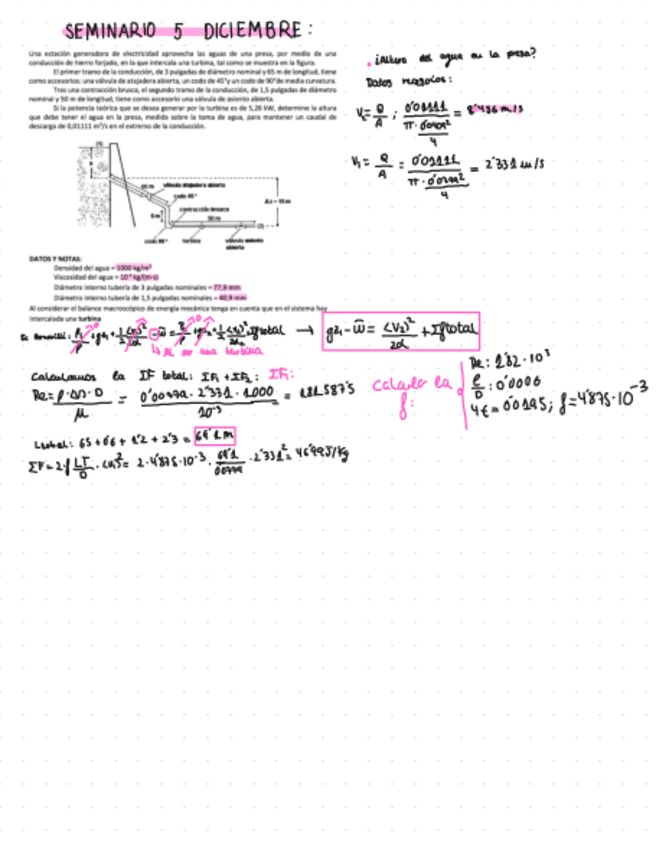 SEMINARIO 5 DICIEMBRE:
Una estación generadora de electricidad aprovecha las aguas de una presa, por medio de una
conducción de hierro forjado, en la que intercala una turbina, tal como se muestra en la figura.
El primer tramo de la conducción, de 3 pulgadas de diámetro nominal y 65 m de longitud, tiene
como accesorios: una válvula de atajadera abierta, un codo de 45° y un codo de 90° de media curvatura.
Tras una contracción brusca, el segundo tramo de la conducción, de 1,5 pulgadas de diámetro
nominal y 50 m de longitud, tiene como accesorio una válvula de asiento abierta.
Si la potencia teórica que se desea generar por la turbina es de 5,26 kW, determine la altura
que debe tener el agua en la presa, medida sobre la toma de agua, para mantener un caudal de
descarga de 0,01111 m³/s en el extremo de la conducción.
¿Altura del agua en la presa?
Datos necesarios:
V₂ = Q/A ; 0'01111 / (π · 0'0409² / 4) = 8'456 m/s
V₁ = Q/A = 0'01111 / (π · 0'0779² / 4) = 2'331 m/s
(1)
60 m
válvula atajadera abierta
codo 45°
contracción brusca
5 m
50 m
(2)
codo 90°
turbina
válvula asiento
abierta
DATOS Y NOTAS:
Densidad del agua = 1000 kg/m³
Viscosidad del agua = 10⁻³ kg/(m·s)
Diámetro interno tubería de 3 pulgadas nominales = 77,9 mm
Diámetro interno tubería de 1,5 pulgadas nominales = 40,9 mm
Al considerar el balance macroscópico de energía mecánica tenga en cuenta que en el sistema hay
intercalada una turbina
→ gz₁ - ŵ = (V₂)² / 2α + ΣF total
↳ Al ser una turbina
Calculamos la ΣF total: ΣF₁ + ΣF₂: ΣF₁:
Re = ρ · D / μ = 0'0779 · 2'331 · 1000 / 10⁻³ = 181.587'5
calculo la f:
Re: 1'82 · 10⁵
ε/D : 0'0006
4f = 0'0195; f = 4'875 · 10⁻³
Ltotal: 65 + 0'6 + 1'2 + 2'3 = 69'1 m
ΣF = 2 · f · LT/D · (V₁)² = 2 · 4'875 · 10⁻³ · 69'1/0'0779 · 2'331² = 46'99 J/kg